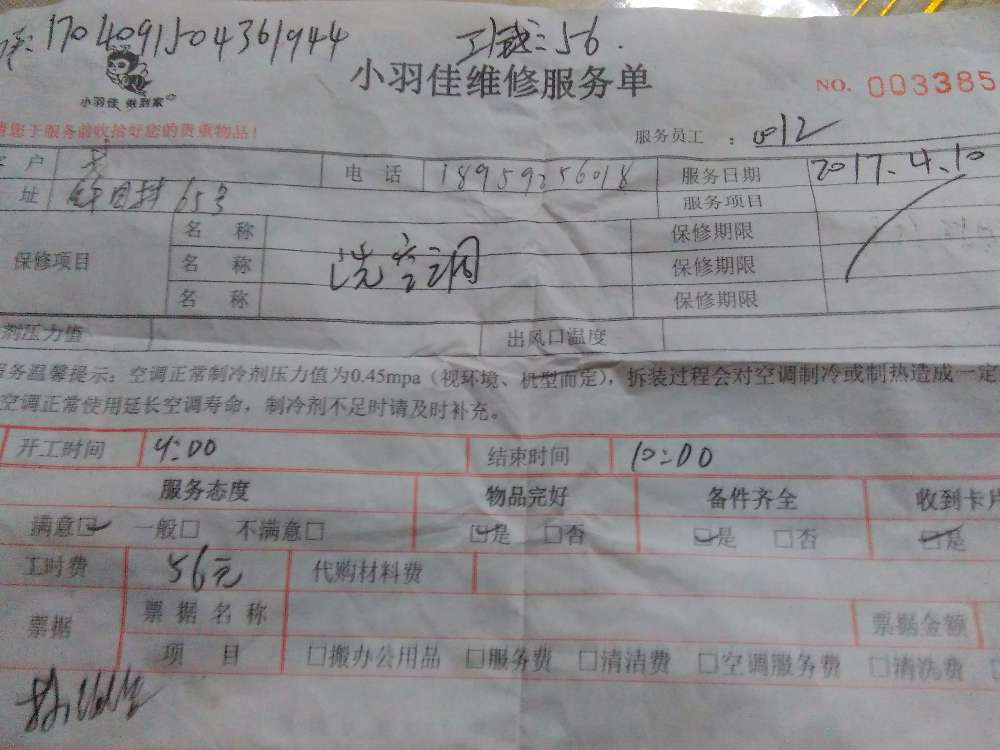 1704091504361944 工钱:56.
小羽佳维修服务单
小羽佳 做到家
NO. 003385
请您于服务前收拾好您的贵重物品!
服务员工 : 0012
户 电话 18959256018 服务日期 2017.4.10
址 65号 服务项目
保修项目
名称 保修期限
名称 洗空调 保修期限
名称 保修期限
剂压力值 出风口温度
服务温馨提示:空调正常制冷剂压力值为0.45mpa(视环境、机型而定),拆装过程会对空调制冷或制热造成一定
空调正常使用延长空调寿命,制冷剂不足时请及时补充。
开工时间 9:00 结束时间 10:00
服务态度 物品完好 备件齐全 收到卡片
满意☑ 一般□ 不满意□ ☑是 □否 ☑是 □否 ☑是
工时费 56元 代购材料费
票据 票据名称 票据金额
项目 □搬办公用品 □服务费 □清洁费 □空调服务费 □清洗费